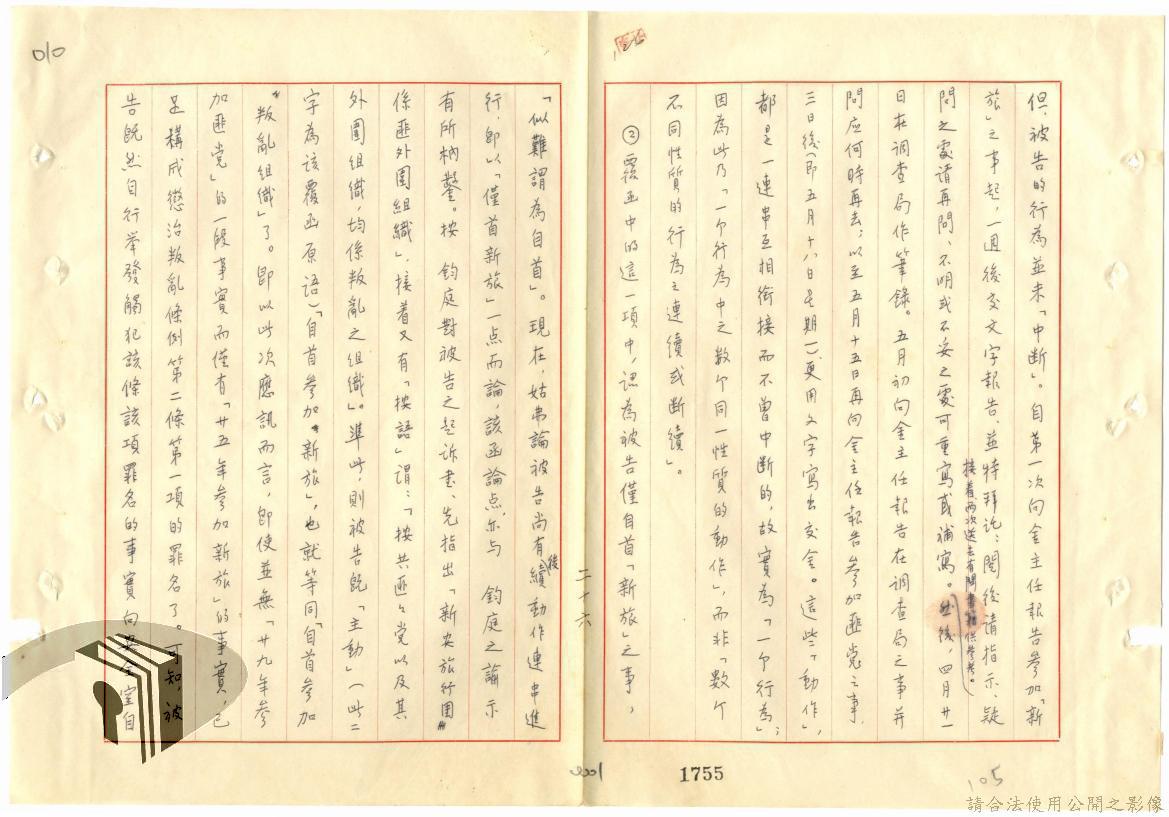 但，被告的行為並未「中斷」。自第一次向金主任報告參加「新
旅」之事起，一週後交文字報告，並特拜託：閱後請指示，疑
接着兩次送去有關書籍供參考。
問之處請再問，不明或不妥之處可重寫或補寫。然後，四月廿一
日在調查局作筆錄。五月初向金主任報告在調查局之事并
問应何時再去；以至五月十五日再向金主任報告參加匪党之事，
三日後（即五月十八日星期一）更用文字寫出交金。這些「動作」，
都是一連串互相銜接而不曾中断的，故實為「一个行為」；
因為此乃「一个行為中之数个同一性質的動作」，而非「数个
不同性質的行為之連續或断續」。
②覆函中的這一項中，認為被告僅自首「新旅」之事，
二十六
「似難謂為自首」。現在，姑弗論被告尚有後續動作連串進
行，即以「僅首新旅」一点而論，該函論点，亦与　鈞庭之諭示
有所枘鑿。按　鈞庭對被告之起訴書、先指出「新安旅行团"
係匪外围組織」，接着又有「按語」謂：「按共匪匪党以及其
外围組織，均係叛亂之組織」。準此，則被告既「主動」（此二
字為該覆函原語）「自首參加"新旅」，也就等同「自首參加
"叛亂組織」了。即以此次應訊而言，即使並無「廿九年參
加匪党」的一段事實而僅有「廿五年參加新旅」的事實，已
足構成懲治叛亂條例第二條第一項的罪名了。可知，被
告既然自行举發觸犯該條該項罪名的事實向安全室自
010
1755
105
請合法使用公開之影像